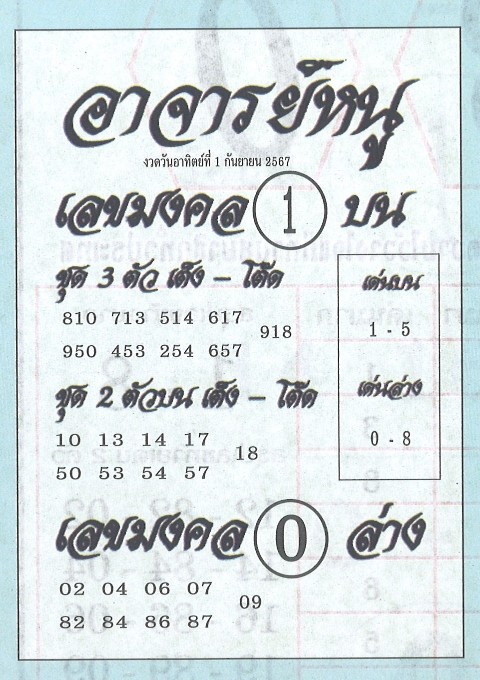 อาจารย์หนู
งวดวันอาทิตย์ที่ 1 กันยายน 2567
เลขมงคล 1 บน
ชุด 3 ตัว เต็ง - โต๊ด
810 713 514 617
918
950 453 254 657
เด่นบน
1 - 5
ชุด 2 ตัวบน เต็ง - โต๊ด
10 13 14 17
18
50 53 54 57
เด่นล่าง
0 - 8
เลขมงคล 0 ล่าง
02 04 06 07
09
82 84 86 87